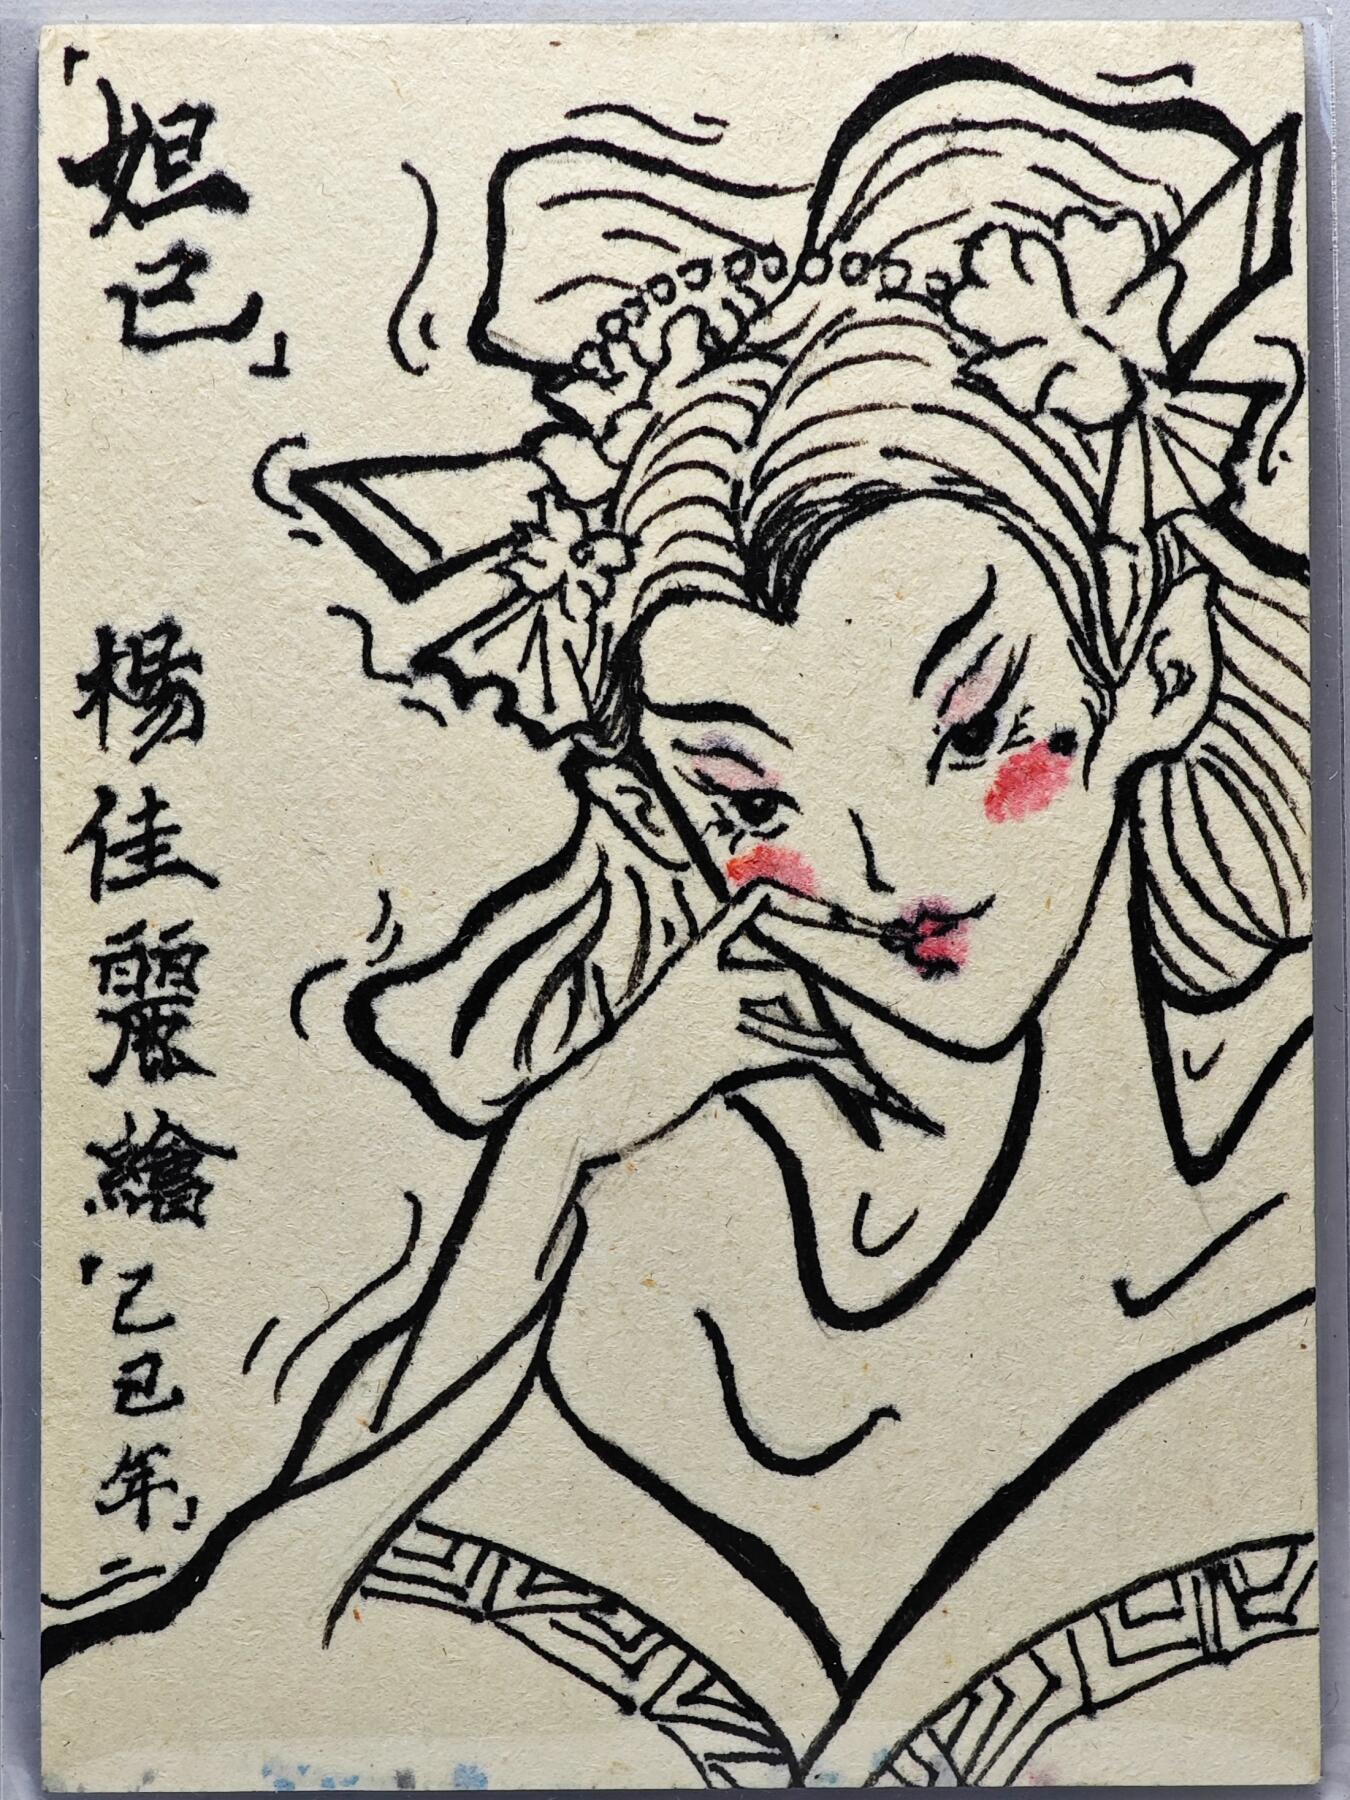 「妲己」
楊佳麗繪
「己巳年」